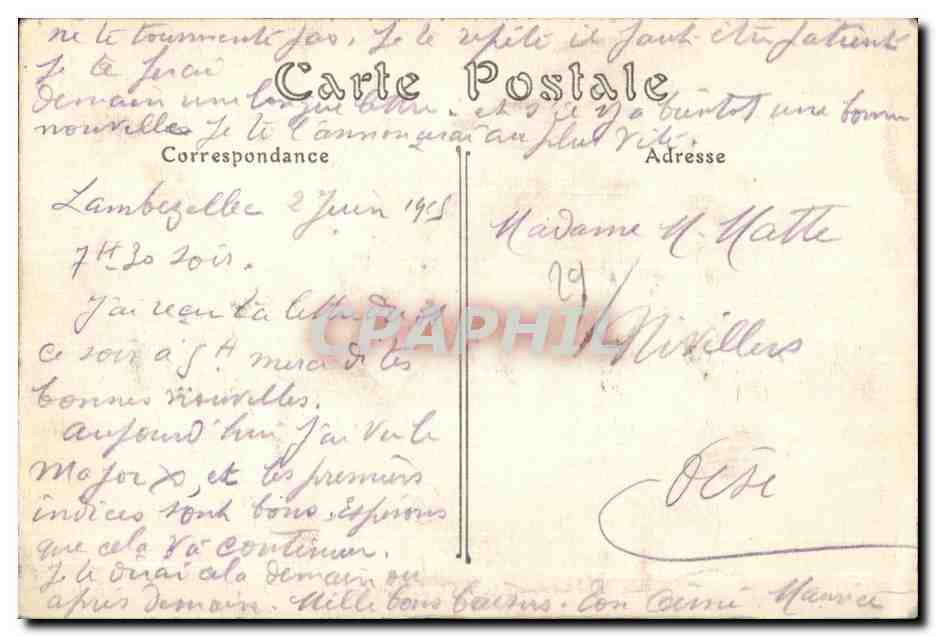 ne te tourmente pas, Je te répète il faut être patiente
Je te ferai
Carte Postale
demain une longue lettre. et s'il y a bientot une bonne
nouvelle Je te l'annoncerai au plus vite.
Correspondance
Lambezellec 2 Juin 1915
7H 30 soir.
J'ai reçu ta lettre du
ce soir à 5H. merci de tes
bonnes nouvelles.
Aujourd'hui J'ai vu le
Major, et les premiers
indices sont bons. Espérons
que cela va continuer.
Je te dirai cela demain ou
après demain. Mille bons baisers. Ton aimé Maurice
Adresse
Madame M. Matte
29
Nivillers
Oise
CPAPHIL